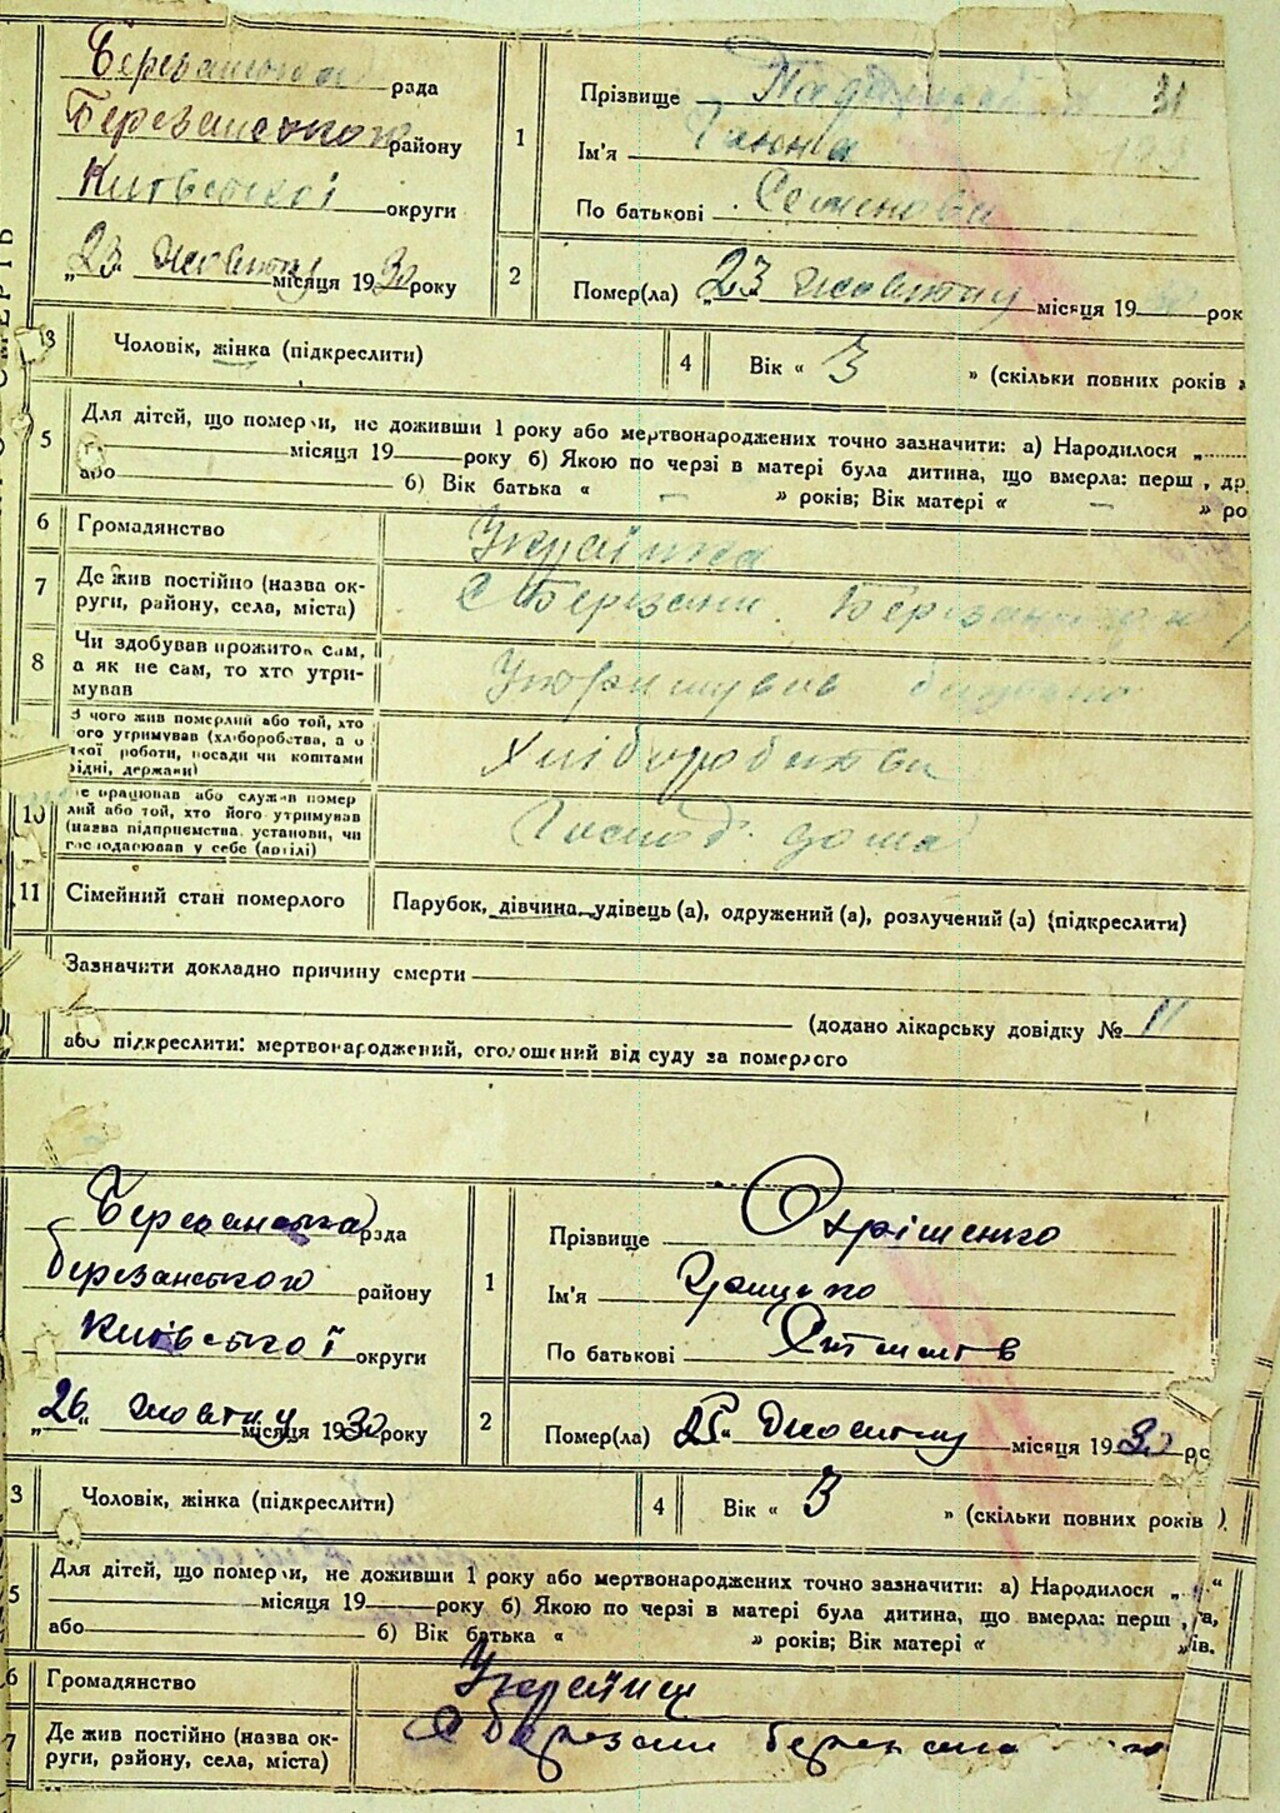 Березанська рада
Березанського району
Київської округи
„23“ жовтня місяця 1930 року
1
Прізвище 31
Ім'я Ганна
По батькові Семеновна
2
Помер(ла) „23“ жовтня місяця 19 рок
3 Чоловік, жінка (підкреслити)
4 Вік « 3 » (скільки повних років »
5 Для дітей, що померли, не доживши 1 року або мертвонароджених точно зазначити: а) Народилося „
місяця 19 року б) Якою по черзі в матері була дитина, що вмерла: перш , др
або б) Вік батька « – » років; Вік матері « – » ро
6 Громадянство Українка
7 Де жив постійно (назва ок-
руги, району, села, міста) с Березани
8 Чи здобував прожиток сам,
а як не сам, то хто утри-
мував Утримував батько
З чого жив померлий або той, хто
ого утримував (хліборобства, а о
якої роботи, посади чи коштами
рідні, держави)
Хліборобства
10 е працював або служив помер
лий або той, хто його утримував
(назва підприємства установи, чи
господарював у себе (артілі)
Господ. дома
11 Сімейний стан померлого Парубок, дівчина, удівець (а), одружений (а), розлучений (а) (підкреслити)
Зазначити докладно причину смерти
(додано лікарську довідку № 11
або підкреслити: мертвонароджений, оголошений від суду за померлого
Березанська рада
березанського району
Київської округи
„26“ жовтня місяця 1930 року
1
Прізвище Охріменко
Ім'я Грицько
По батькові
2
Помер(ла) „25“ жовтня місяця 1930 рс
3 Чоловік, жінка (підкреслити)
4 Вік « 3 » (скільки повних років )
5 Для дітей, що померли, не доживши 1 року або мертвонароджених точно зазначити: а) Народилося „ “
місяця 19 року б) Якою по черзі в матері була дитина, що вмерла: перш , а,
або б) Вік батька « » років; Вік матері « » ів.
6 Громадянство Украйнц
7 Де жив постійно (назва ок-
руги, району, села, міста) с березани